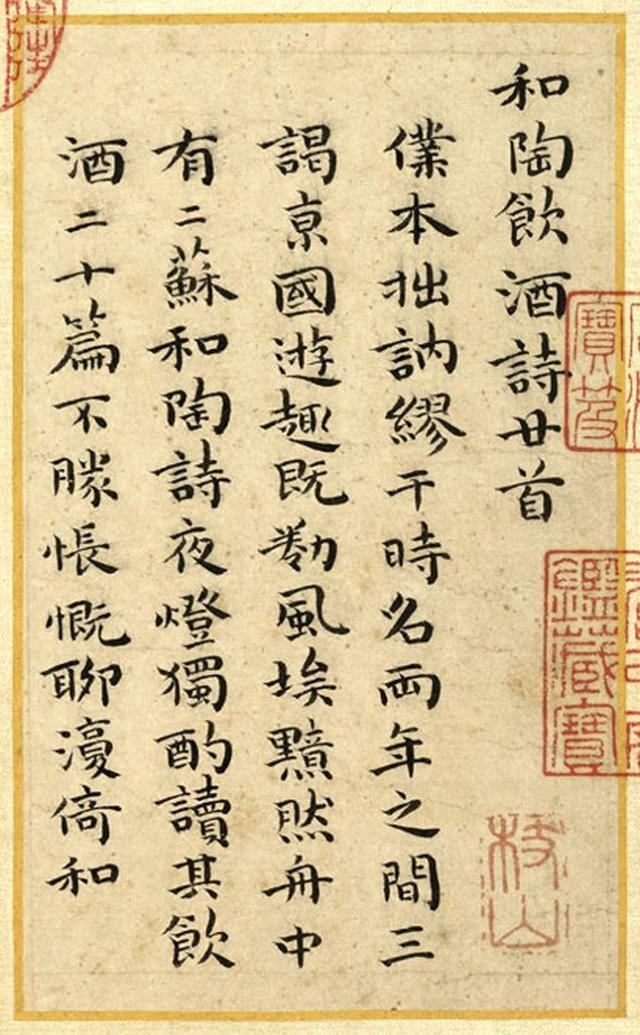 和陶飲酒詩廿首
僕本拙訥繆干時名兩年之間三
謁京國遊趣既勌風埃黯然舟中
有二蘇和陶詩夜燈獨酌讀其飲
酒二十篇不勝悵慨聊漫倚和
寶笈
鑑藏寶
枝山